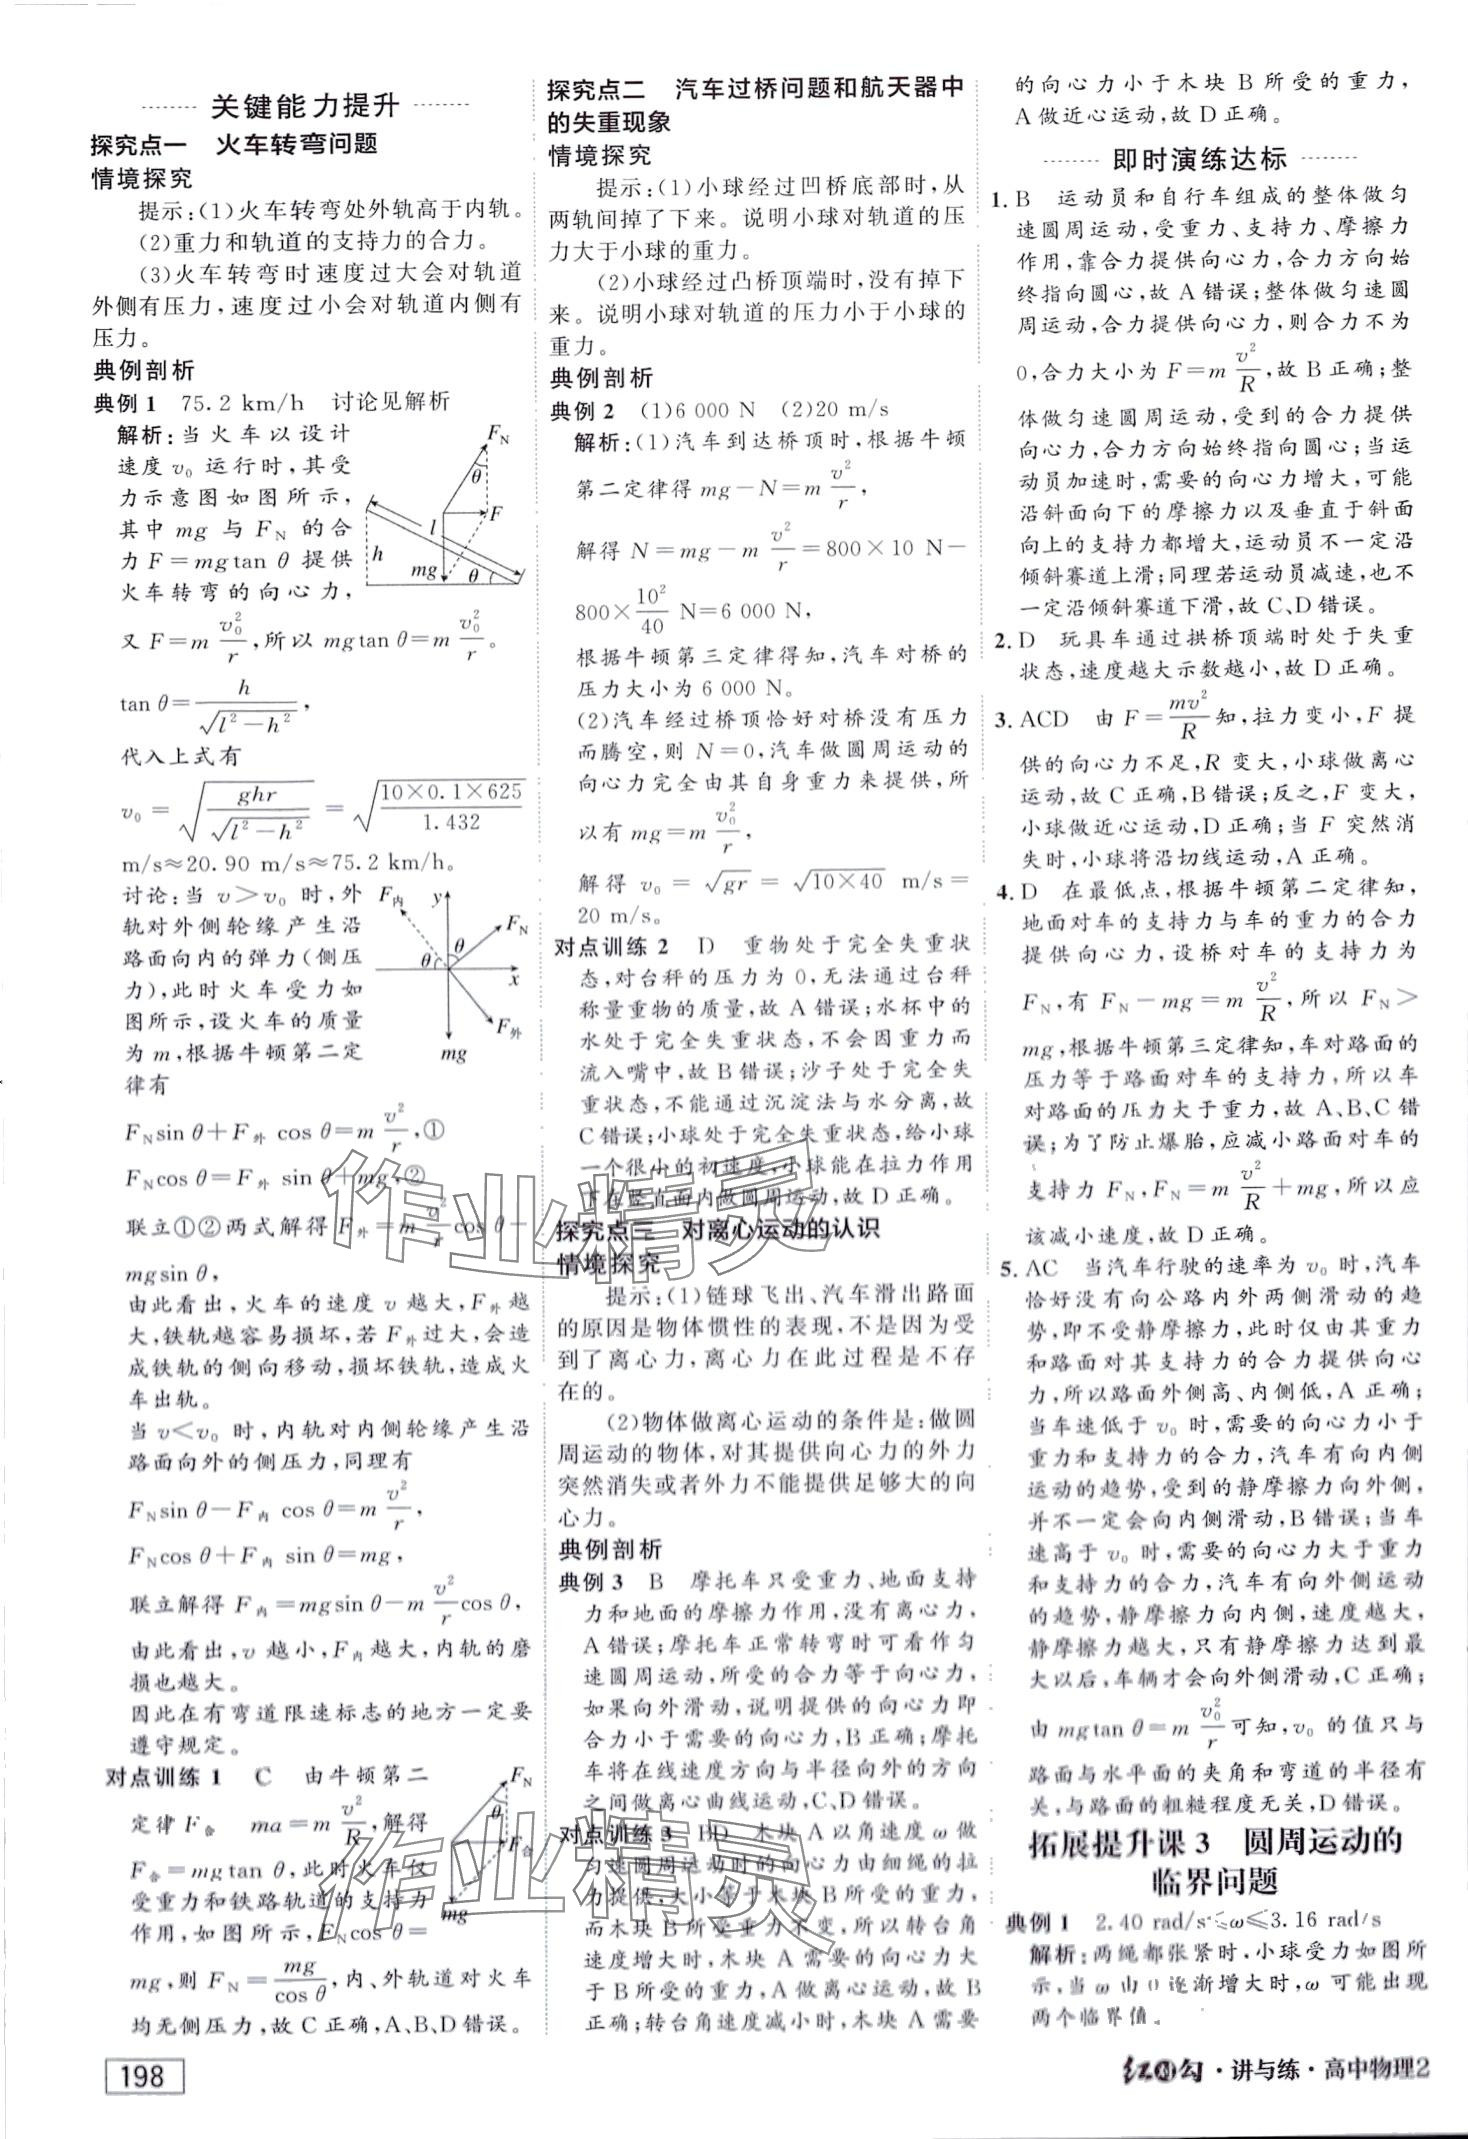 关键能力提升
探究点一 火车转弯问题
情境探究
提示:(1)火车转弯处外轨高于内轨。
(2)重力和轨道的支持力的合力。
(3)火车转弯时速度过大会对轨道
外侧有压力,速度过小会对轨道内侧有
压力。
典例剖析
典例 1 75.2 km/h 讨论见解析
解析:当火车以设计
速度 v₀ 运行时,其受
力示意图如图所示,
其中 mg 与 F_N 的合
力 F=mgtan θ 提供
火车转弯的向心力,
F_N
θ
F
l
h
mg
θ
又 F=m v₀²/r,所以 mgtan θ=m v₀²/r。
tan θ=h/√(l²-h²),
代入上式有
v₀ =√(ghr/√(l²-h²)) =√(10×0.1×625/1.432)
m/s≈20.90 m/s≈75.2 km/h。
讨论:当 v>v₀ 时,外
轨对外侧轮缘产生沿
路面向内的弹力(侧压
力),此时火车受力如
图所示,设火车的质量
为 m,根据牛顿第二定
律有
F内
y
F_N
θ
θ
x
F外
mg
F_N sin θ+F外 cos θ=m v²/r,①
F_N cos θ=F外 sin θ+mg,②
联立①②两式解得 F外=m v²/r cos θ-
mgsin θ,
由此看出,火车的速度 v 越大,F外越
大,铁轨越容易损坏,若 F外过大,会造
成铁轨的侧向移动,损坏铁轨,造成火
车出轨。
当 v<v₀ 时,内轨对内侧轮缘产生沿
路面向外的侧压力,同理有
F_N sin θ-F内 cos θ=m v²/r,
F_N cos θ+F内 sin θ=mg,
联立解得 F内=mgsin θ-m v²/r cos θ,
由此看出,v 越小,F内越大,内轨的磨
损也越大。
因此在有弯道限速标志的地方一定要
遵守规定。
对点训练 1 C 由牛顿第二
定律 F合 ma=m v²/R,解得
F合=mgtan θ,此时火车仅
受重力和铁路轨道的支持力
作用,如图所示,F_N cos θ=
F_N
θ
F合
mg
mg,则 F_N=mg/cos θ,内、外轨道对火车
均无侧压力,故 C 正确,A、B、D 错误。
探究点二 汽车过桥问题和航天器中
的失重现象
情境探究
提示:(1)小球经过凹桥底部时,从
两轨间掉了下来。说明小球对轨道的压
力大于小球的重力。
(2)小球经过凸桥顶端时,没有掉下
来。说明小球对轨道的压力小于小球的
重力。
典例剖析
典例 2 (1)6 000 N (2)20 m/s
解析:(1)汽车到达桥顶时,根据牛顿
第二定律得 mg-N=m v²/r,
解得 N=mg-m v²/r=800×10 N-
800×10²/40 N=6 000 N,
根据牛顿第三定律得知,汽车对桥的
压力大小为 6 000 N。
(2)汽车经过桥顶恰好对桥没有压力
而腾空,则 N=0,汽车做圆周运动的
向心力完全由其自身重力来提供,所
以有 mg=m v₀²/r,
解得 v₀ = √gr = √(10×40) m/s=
20 m/s。
对点训练 2 D 重物处于完全失重状
态,对台秤的压力为 0,无法通过台秤
称量重物的质量,故 A 错误;水杯中的
水处于完全失重状态,不会因重力而
流入嘴中,故 B 错误;沙子处于完全失
重状态,不能通过沉淀法与水分离,故
C 错误;小球处于完全失重状态,给小球
一个很小的初速度,小球能在拉力作用
下在竖直面内做圆周运动,故 D 正确。
探究点三 对离心运动的认识
情境探究
提示:(1)链球飞出、汽车滑出路面
的原因是物体惯性的表现,不是因为受
到了离心力,离心力在此过程是不存
在的。
(2)物体做离心运动的条件是:做圆
周运动的物体,对其提供向心力的外力
突然消失或者外力不能提供足够大的向
心力。
典例剖析
典例 3 B 摩托车只受重力、地面支持
力和地面的摩擦力作用,没有离心力,
A 错误;摩托车正常转弯时可看作匀
速圆周运动,所受的合力等于向心力,
如果向外滑动,说明提供的向心力即
合力小于需要的向心力,B 正确;摩托
车将在线速度方向与半径向外的方向
之间做离心曲线运动,C、D 错误。
对点训练 3 BD 木块 A 以角速度 ω 做
匀速圆周运动时的向心力由细绳的拉
力提供,大小等于木块 B 所受的重力,
而木块 B 所受重力不变,所以转台角
速度增大时,木块 A 需要的向心力大
于 B 所受的重力,A 做离心运动,故 B
正确;转台角速度减小时,木块 A 需要
的向心力小于木块 B 所受的重力,
A 做近心运动,故 D 正确。
即时演练达标
1. B 运动员和自行车组成的整体做匀
速圆周运动,受重力、支持力、摩擦力
作用,靠合力提供向心力,合力方向始
终指向圆心,故 A 错误;整体做匀速圆
周运动,合力提供向心力,则合力不为
0,合力大小为 F=m v²/R,故 B 正确;整
体做匀速圆周运动,受到的合力提供
向心力,合力方向始终指向圆心;当运
动员加速时,需要的向心力增大,可能
沿斜面向下的摩擦力以及垂直于斜面
向上的支持力都增大,运动员不一定沿
倾斜赛道上滑;同理若运动员减速,也不
一定沿倾斜赛道下滑,故 C、D 错误。
2. D 玩具车通过拱桥顶端时处于失重
状态,速度越大示数越小,故 D 正确。
3. ACD 由 F=mv²/R知,拉力变小,F 提
供的向心力不足,R 变大,小球做离心
运动,故 C 正确,B 错误;反之,F 变大,
小球做近心运动,D 正确;当 F 突然消
失时,小球将沿切线运动,A 正确。
4. D 在最低点,根据牛顿第二定律知,
地面对车的支持力与车的重力的合力
提供向心力,设桥对车的支持力为
F_N,有 F_N-mg=m v²/R,所以 F_N>
mg,根据牛顿第三定律知,车对路面的
压力等于路面对车的支持力,所以车
对路面的压力大于重力,故 A、B、C 错
误;为了防止爆胎,应减小路面对车的
支持力 F_N,F_N=m v²/R+mg,所以应
该减小速度,故 D 正确。
5. AC 当汽车行驶的速率为 v₀ 时,汽车
恰好没有向公路内外两侧滑动的趋
势,即不受静摩擦力,此时仅由其重力
和路面对其支持力的合力提供向心
力,所以路面外侧高、内侧低,A 正确;
当车速低于 v₀ 时,需要的向心力小于
重力和支持力的合力,汽车有向内侧
运动的趋势,受到的静摩擦力向外侧,
并不一定会向内侧滑动,B 错误;当车
速高于 v₀ 时,需要的向心力大于重力
和支持力的合力,汽车有向外侧运动
的趋势,静摩擦力向内侧,速度越大,
静摩擦力越大,只有静摩擦力达到最
大以后,车辆才会向外侧滑动,C 正确;
由 mgtan θ=m v₀²/r可知,v₀ 的值只与
路面与水平面的夹角和弯道的半径有
关,与路面的粗糙程度无关,D 错误。
拓展提升课 3 圆周运动的
临界问题
典例 1 2.40 rad/s≤ω≤3.16 rad/s
解析:两绳都张紧时,小球受力如图所
示,当 ω 由 0 逐渐增大时,ω 可能出现
两个临界值。
198
红对勾·讲与练·高中物理2
作业精灵
作业精灵